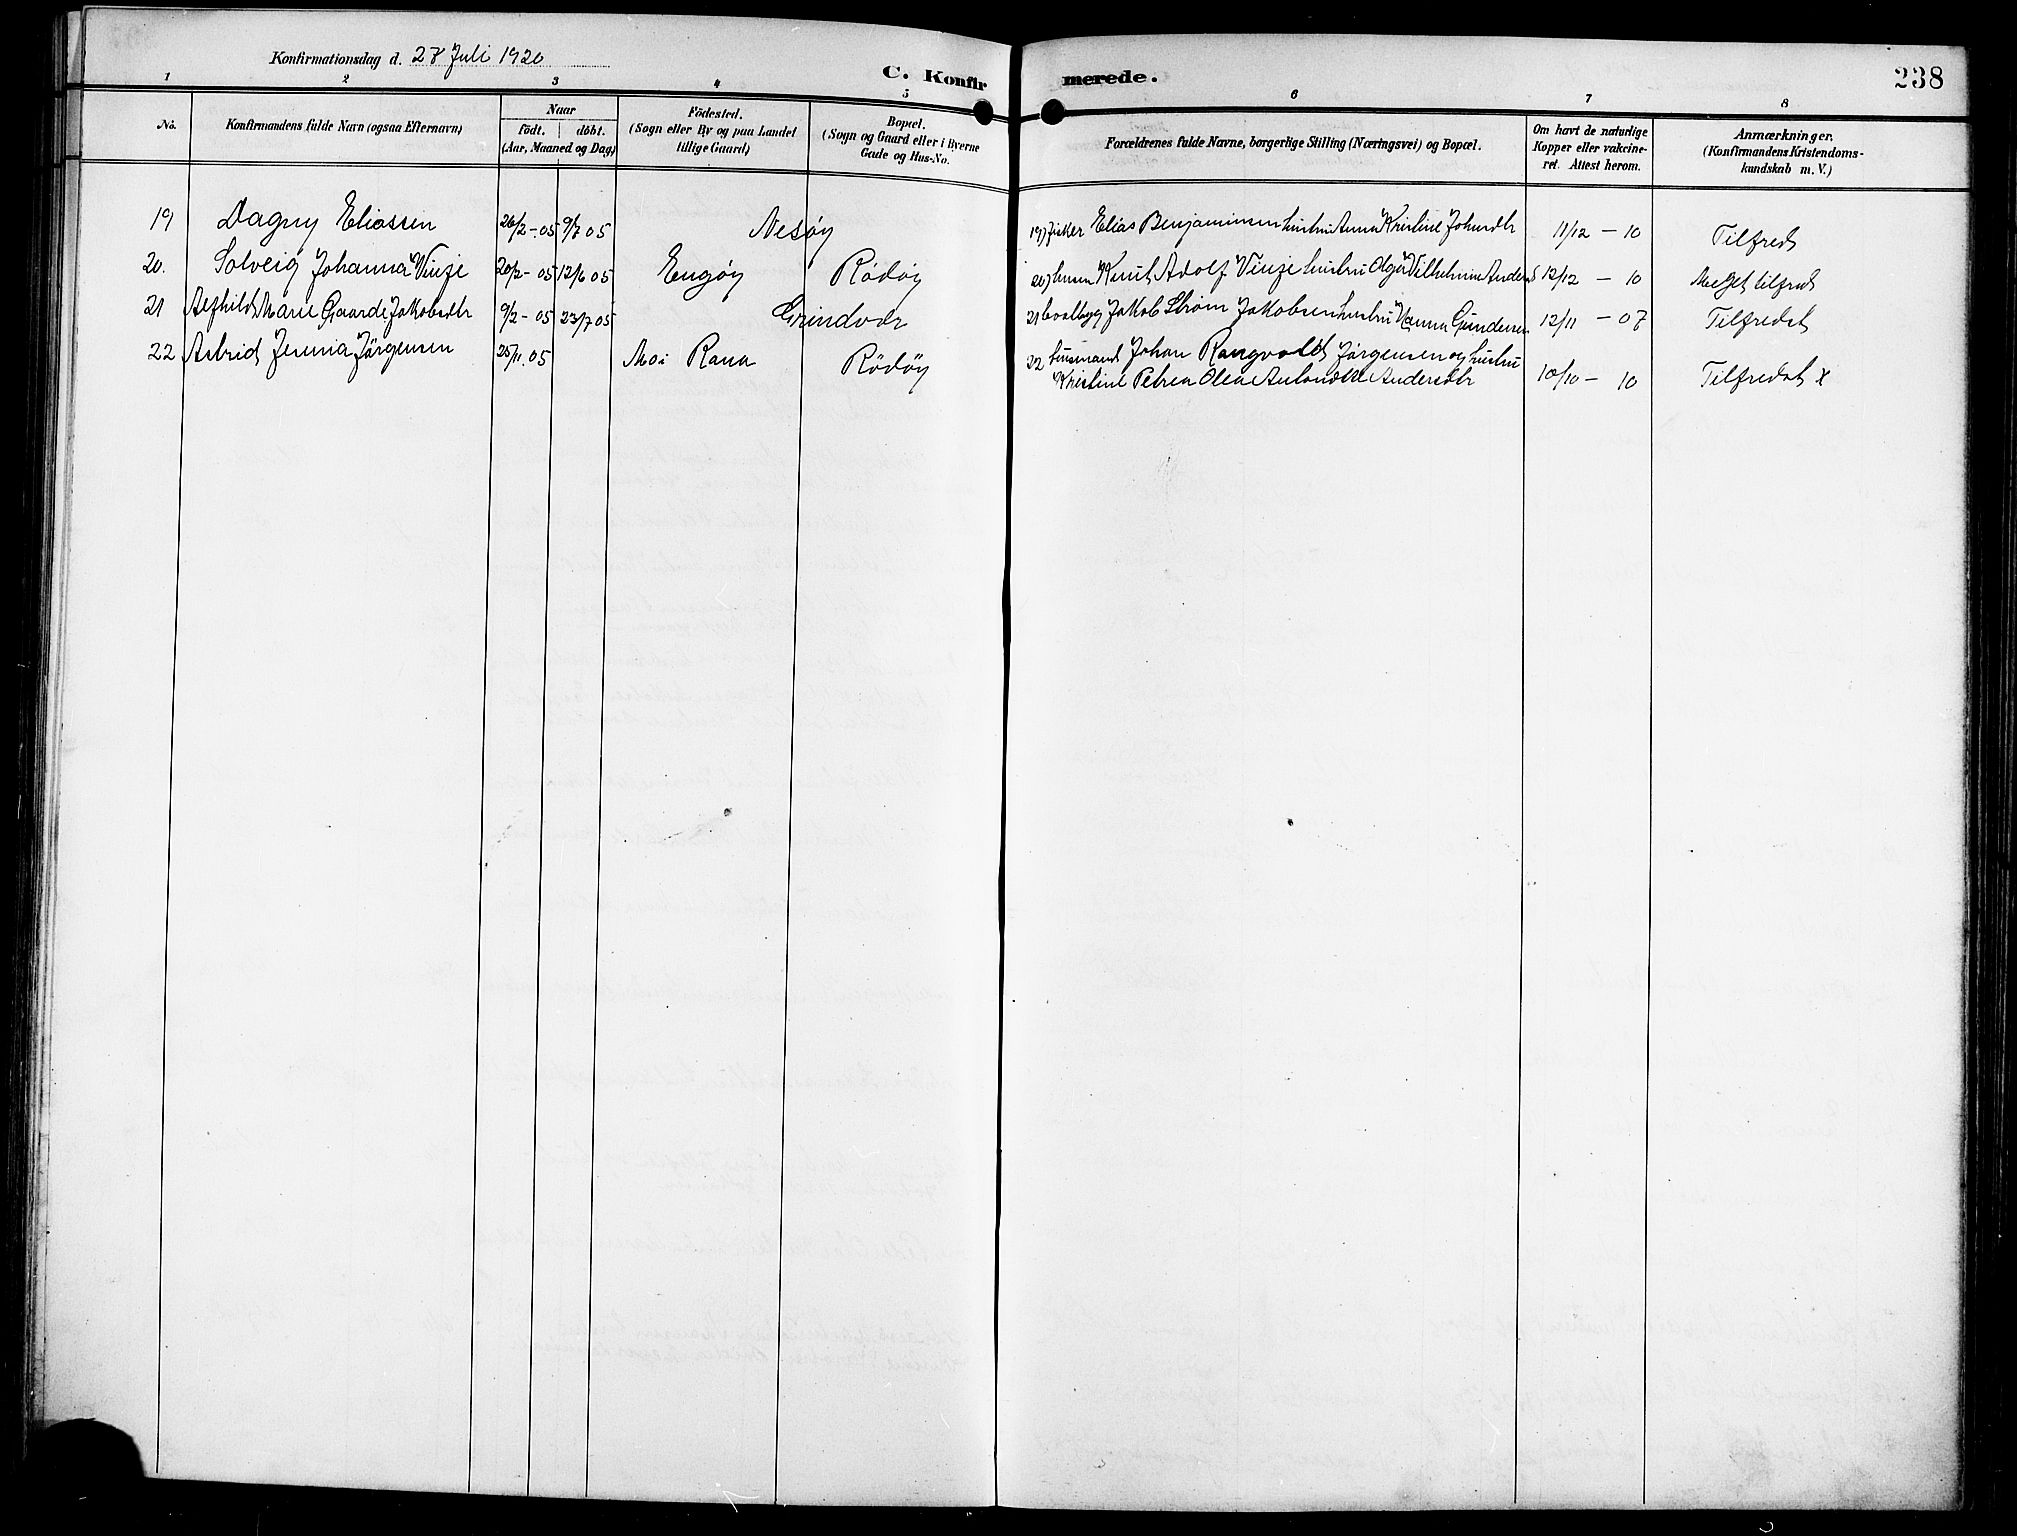 Konfirmationsdag d. 27 Juli 1920
C. Konfirmerede.
238
1 2 3 4 5 6 7 8
No.
Konfirmandens fulde Navn (ogsaa Efternavn)
Naar
födt. döbt.
(Aar, Maaned og Dag)
Födested.
(Sogn eller By og paa Landet
tillige Gaard)
Bopæl.
(Sogn og Gaard eller i Byerne
Gade og Hus-No.
Forældrenes fulde Navne, borgerlige Stilling (Næringsvei) og Bopæl.
Om havt de naturlige
Kopper eller vakcine-
ret. Attest herom.
Anmærkninger.
(Konfirmandens Kristendoms-
kundskab m. V.)
19 Dagny Eliassen 26/2-05 9/7 05 Nesöy 19) Fisker Elias Benjaminsen hustru Anna Kristine Johnsdtr 11/12 - 10 Tilfreds
20. Solveig Johanna Vinje 20/2-05 12/6 05 Engöy Rödöy 20) Knut Adolf Vinje hustru Olga Vilhelmine Anders 12/12 - 10 Meget tilfreds
21 Alfhild Marie Gaarde Jakobsdtr 9/2-05 23/7 05 Grindvær 21 Jakob Ström Jakobsen hustru Hanna Gundersen 12/11 - 07 Tilfredst
22 Astrid Jensina Jörgensen 25/11.05 Moi Rana Rödöy 22 husmand Johan Rangvald Jörgensen og hustru
Kristine Petrea Olea Andersdtr 10/10 - 10 Tilfredst x